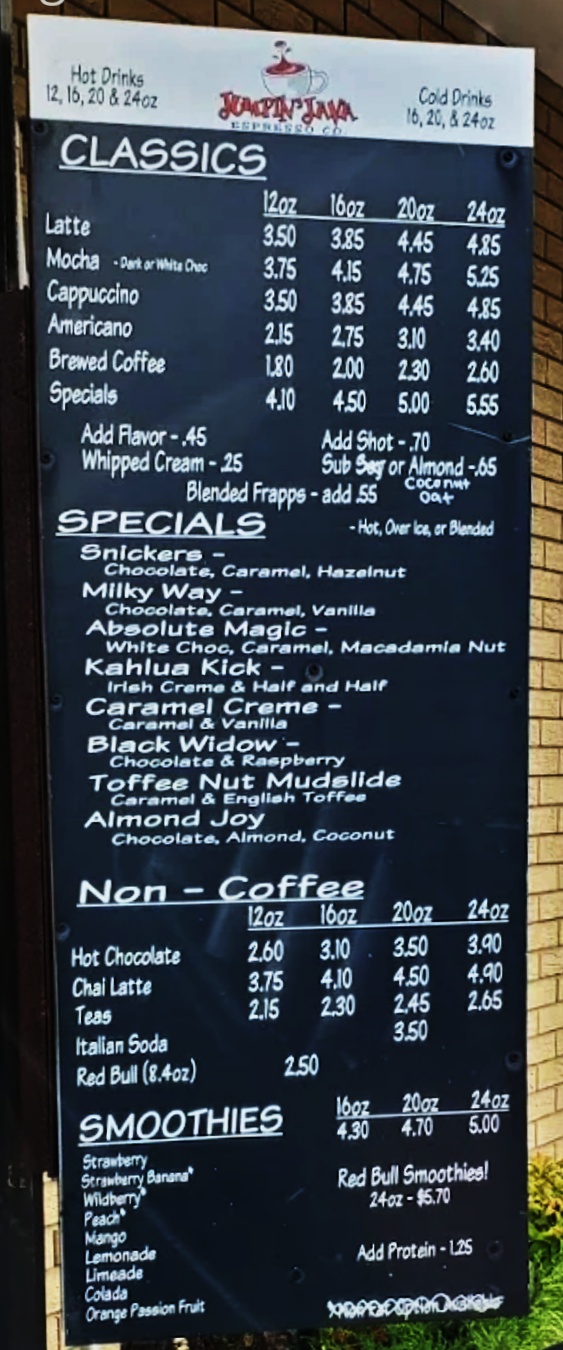 Hot Drinks
12, 16, 20 & 24oz
JUMPIN' JAVA
ESPRESSO CO.
Cold Drinks
16, 20, & 24oz
CLASSICS
12oz 16oz 20oz 24oz
Latte 3.50 3.85 4.45 4.85
Mocha - Dark or White Choc 3.75 4.15 4.75 5.25
Cappuccino 3.50 3.85 4.45 4.85
Americano 2.15 2.75 3.10 3.40
Brewed Coffee 1.80 2.00 2.30 2.60
Specials 4.10 4.50 5.00 5.55
Add Flavor - .45 Add Shot - .70
Whipped Cream - .25 Sub Soy or Almond - .65
Blended Frapps - add .55 Coconut
Oat
SPECIALS - Hot, Over Ice, or Blended
Snickers -
Chocolate, Caramel, Hazelnut
Milky Way -
Chocolate, Caramel, Vanilla
Absolute Magic -
White Choc, Caramel, Macadamia Nut
Kahlua Kick -
Irish Creme & Half and Half
Caramel Creme -
Caramel & Vanilla
Black Widow -
Chocolate & Raspberry
Toffee Nut Mudslide
Caramel & English Toffee
Almond Joy
Chocolate, Almond, Coconut
Non - Coffee
12oz 16oz 20oz 24oz
Hot Chocolate 2.60 3.10 3.50 3.90
Chai Latte 3.75 4.10 4.50 4.90
Teas 2.15 2.30 2.45 2.65
Italian Soda 3.50
Red Bull (8.4oz) 2.50
SMOOTHIES
16oz 20oz 24oz
4.30 4.70 5.00
Strawberry
Strawberry Banana*
Wildberry*
Peach*
Mango
Lemonade
Limeade
Colada
Orange Passion Fruit
Red Bull Smoothies!
24oz - $5.70
Add Protein - 1.25